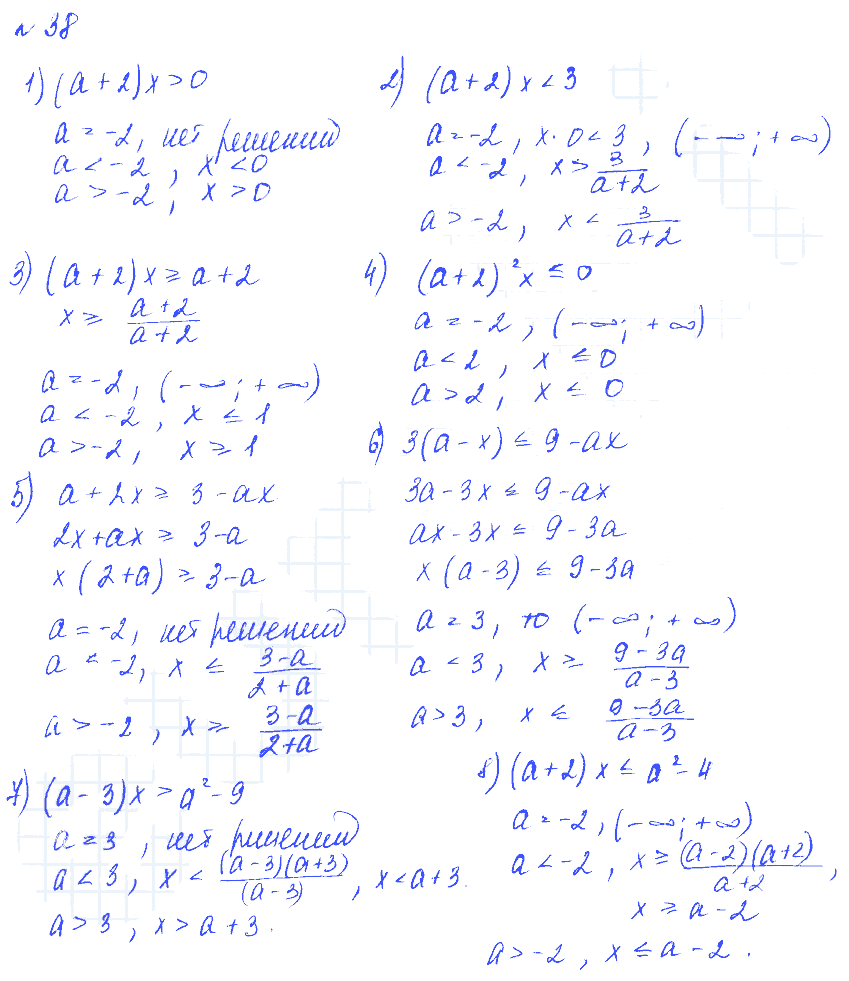 № 38
1) (a + 2)x > 0
a = -2, нет решений
a < -2, x < 0
a > -2, x > 0
2) (a + 2)x < 3
a = -2, x · 0 < 3, (-∞; +∞)
a < -2, x > 3/(a+2)
a > -2, x < 3/(a+2)
3) (a + 2)x ≥ a + 2
x ≥ (a+2)/(a+2)
a = -2, (-∞; +∞)
a < -2, x ≤ 1
a > -2, x ≥ 1
4) (a + 2)²x ≤ 0
a = -2, (-∞; +∞)
a < 2, x ≤ 0
a > 2, x ≤ 0
5) a + 2x ≥ 3 - ax
2x + ax ≥ 3 - a
x(2 + a) ≥ 3 - a
a = -2, нет решений
a < -2, x ≤ (3-a)/(2+a)
a > -2, x ≥ (3-a)/(2+a)
6) 3(a - x) ≤ 9 - ax
3a - 3x ≤ 9 - ax
ax - 3x ≤ 9 - 3a
x(a - 3) ≤ 9 - 3a
a = 3, то (-∞; +∞)
a < 3, x ≥ (9-3a)/(a-3)
a > 3, x ≤ (9-3a)/(a-3)
7) (a - 3)x > a² - 9
a = 3, нет решений
a < 3, x < (a-3)(a+3)/(a-3), x < a + 3.
a > 3, x > a + 3.
8) (a + 2)x ≤ a² - 4
a = -2, (-∞; +∞)
a < -2, x ≥ (a-2)(a+2)/(a+2),
x ≥ a - 2
a > -2, x ≤ a - 2.